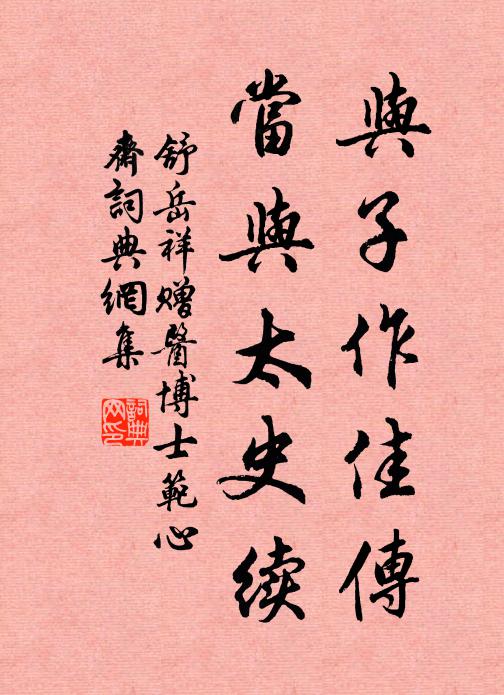 與子作佳傳
當與太史續
舒岳祥贈醫博士範心
齋詞典網集
詞典網印